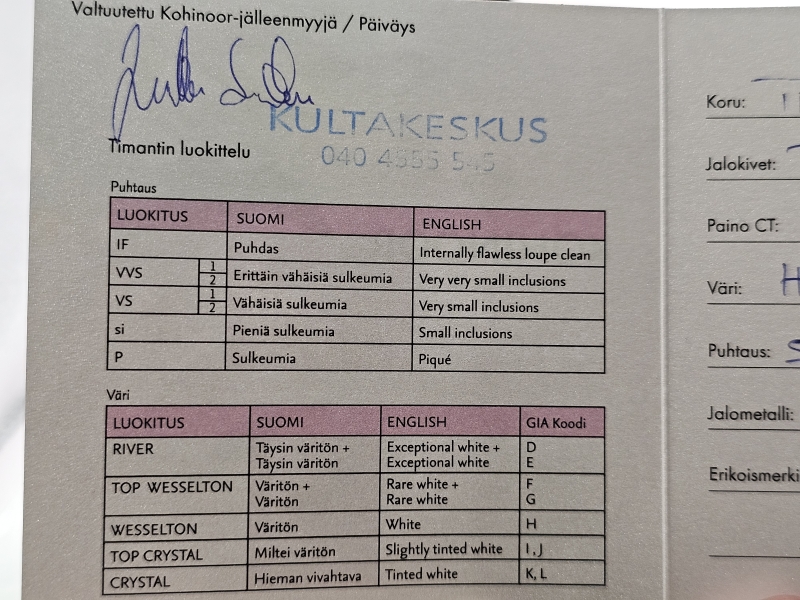 Valtuutettu Kohinoor-jälleenmyyjä / Päiväys
KULTAKESKUS
040
Timantin luokittelu
Puhtaus
LUOKITUS SUOMI ENGLISH
IF Puhdas Internally flawless loupe clean
VVS 1 2 Erittäin vähäisiä sulkeumia Very very small inclusions
VS 1 2 Vähäisiä sulkeumia Very small inclusions
si Pieniä sulkeumia Small inclusions
P Sulkeumia Piqué
Väri
LUOKITUS SUOMI ENGLISH GIA Koodi
RIVER Täysin väritön + Exceptional white + D
Täysin väritön Exceptional white E
TOP WESSELTON Väritön + Rare white + F
Väritön Rare white G
WESSELTON Väritön White H
TOP CRYSTAL Miltei väritön Slightly tinted white I,J
CRYSTAL Hieman vivahtava Tinted white K, L
Koru:
Jalokivet:
Paino CT:
Väri: H
Puhtaus:
Jalometalli:
Erikoismerki